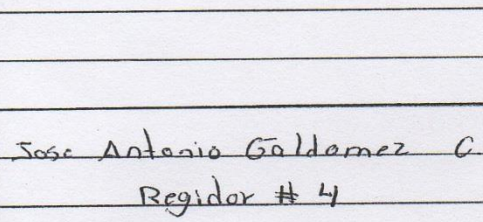 Jose Antonio Galdamez C.
Regidor # 4